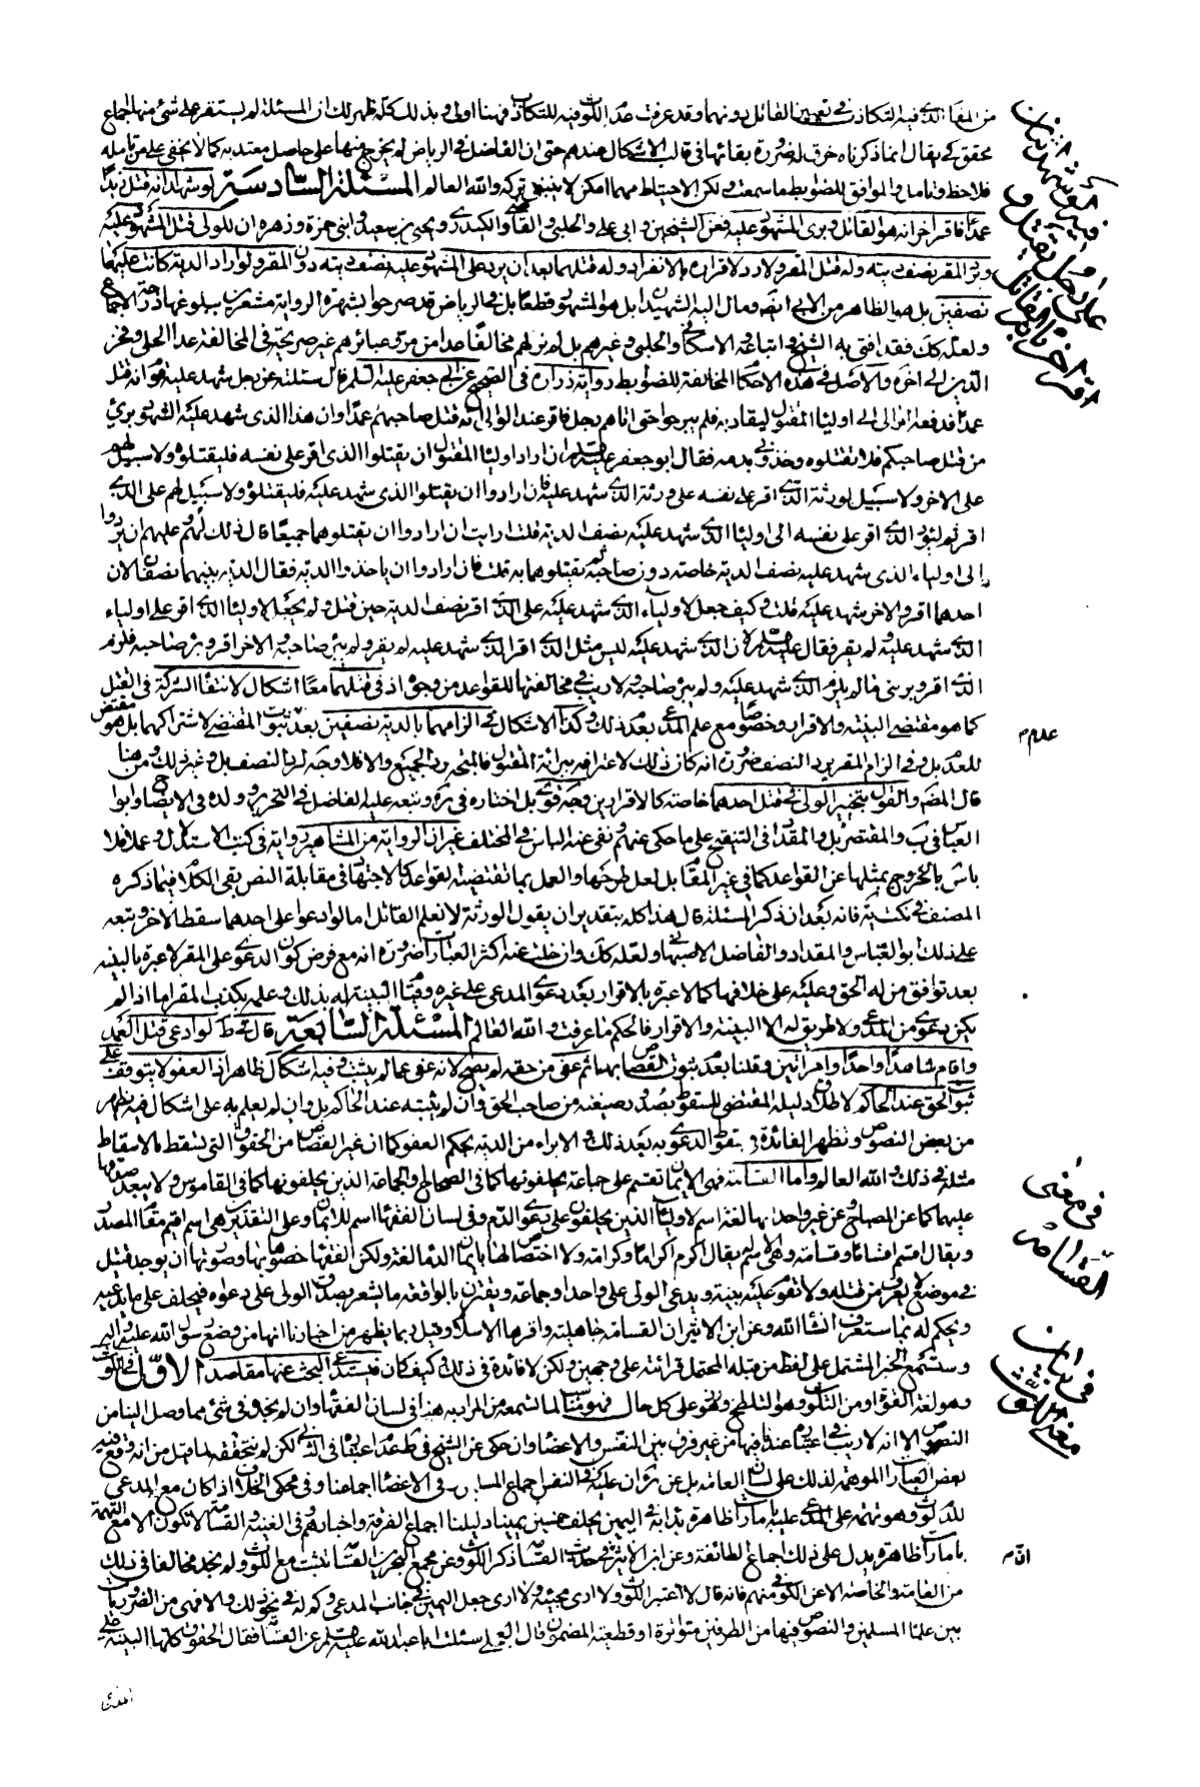 من المقا الذي فيه التكاذب في تعيين القاتل دونهما وقد عرفت عدا اللوث فيه للتكاذب فهنا اولى وبذلك كله ظهر لك ان المسئلة لم يستقر على شئ منها اجماع
محقق كى يقال انما ذكرناه خرق له ضرورة بقائها في قالب الاشكال عندهم حتى ان الفاضل في الرياض لم يخرج منها على حاصل معتد به كما لا يخفى على من تامله
فلاحظ وتامل والموافق للضوابط ما سمعت ولكن الاحتياط مهما امكن لا ينبغي تركه والله العالم المسئلة السادسة لو شهدا انه قتل زيدا
عمدا فاقر اخر انه هو القاتل وبرئ المشهود عليه فعن الشيخين وابي علي والحلبي والقاضي والكيدري ويحيى بن سعيد وابني حمزة وزهرة ان للولي قتل المشهود عليه
ويرد المقر نصف ديته وله قتل المقر ولا رد لاقراره بالانفراد وله قتلهما بعد ان يرد على المشهود عليه نصف ديته دون المقر ولو اراد الدية كانت عليهما
نصفين بل هو الظاهر من الابي ايضا ومال اليه الشهيدان بل هو المشهور قطعا بل في الرياض قد صرحوا بشهرة الرواية مشعرين ببلوغها درجة الاجماع
ولعله كك فقد افتى به الشيخ واتباعه والاسكافي والحلبي وغيرهم بل لم نر لهم مخالفا عدا من مر في عبائرهم غير صريحة في المخالفة عدا الحلي وفخر
الدين الى اخره والاصل في هذه الاحكام المخالفة للضوابط رواية زرارة في الصحيح عن ابي جعفر عليه السلم قال سئلته عن رجل شهد عليه قوم انه قتل
عمدا فدفعه الوالي الى اولياء المقتول ليقاد به فلم يبرحوا حتى اتاهم رجل فاقر عند الوالي انه قتل صاحبهم عمدا وان هذا الذي شهد عليه الشهود برئ
من قتل صاحبكم فلا تقتلوه وخذوني بدمه فقال ابو جعفر عليه السلم ان اراد اولياء المقتول ان يقتلوا الذي اقر على نفسه فليقتلوه ولا سبيل لهم
على الاخر ولا سبيل لورثة الذي اقر على نفسه على ورثة الذي شهد عليه فان ارادوا ان يقتلوا الذي شهد عليه فليقتلوه ولا سبيل لهم على الذي
اقر ثم ليؤد الذي اقر على نفسه الى اولياء الذي شهد عليه نصف الدية قلت ارايت ان ارادوا ان يقتلوهما جميعا قال ذلك لهم وعليهم ان يردوا
الى اولياء الذي شهد عليه نصف الدية خاصة دون صاحبه ثم يقتلوهما به قلت فان ارادوا ان ياخذوا الدية فقال الدية بينهما نصفان لان
احدهما اقر والاخر شهد عليه قلت وكيف جعل لاولياء الذي شهد عليه على الذي اقر نصف الدية حين قتل ولم يجعل لاولياء الذي اقر على اولياء
الذي شهد عليه ولم يقر فقال عليه السلم لان الذي شهد عليه ليس مثل الذي اقر الذي شهد عليه لم يقر ولم يبرئ صاحبه والاخر اقر وبرئ صاحبه فلزم
الذي اقر وبرئ ما لم يلزم الذي شهد عليه ولم يبرئ صاحبه ولا ريب في مخالفتها للقواعد من وجوه اذ في قتلهما معا اشكال لانتفاء الشركة في القتل
كما هو مقتضى البينة والاقرار وخصوصا مع علم المدعي بعد ذلك وكذا الاشكال في الزامهما بالدية نصفين بعد ثبوت المقتضى لاشتراكهما بل هو مقتض
للعدم بل وفي الزام المقر برد النصف ضرورة انه كان ذلك لاعترافه ببرائة المقتول فالمتجه رد الجميع والا فلا وجه لرد النصف بل وغير ذلك ومن هنا
قال المصنف والقول بتخيير الولي في قتل احدهما خاصة كالاقرارين وجه قوي بل اختاره في ئر وتبعه عليه الفاضل في التحرير وولده في الايضاح وابو
العباس في ب والمقتصر بل والمقداد في التنقيح على ما حكى عنهم ونفى عنه الباس في المختلف غير ان الرواية من المشاهير رواية في كتب الاستدلال وعملا فلا
باس بالخروج بمثلها عن القواعد كما في غير المقام بل لعل طرحها والعمل بما تقتضيه القواعد كالاجتهاد في مقابلة النص بقى الكلام فيما ذكره
المصنف في نكت ية فانه بعد ان ذكر المسئلة قال هذا كله بتقدير ان يقول الورثة لا نعلم القاتل اما لو ادعوا على احدهما سقط الاخر وتبعه
على ذلك ابو العباس والمقداد والفاضل الاصبهاني ولعله كك وان خلت عنه اكثر العبارات ضرورة انه مع فرض كون الدعوى على المقر لا عبرة بالبينة
بعد توافق من له الحق وعليه على خلافها كما لا عبرة بالاقرار بعد دعوى المدعي على غيره وقيام البينة له بذلك وعلمه بكذب المقر اما اذا لم
يكن دعوى من المدعي ولا طريق له الا البينة والاقرار فالحكم ما عرفت والله العالم المسئلة السابعة قال في ط لو ادعى قتل العمد
واقام شاهدا واحدا وامراتين وقلنا بعدم ثبوت القصاص بهما ثم عفى عن حقه لم يصح لانه عفى عما لم يثبت وفيه اشكال ظاهر اذ العفو لا يتوقف على
ثبوت الحق عند الحاكم لاطلاق دليله المقتضي للسقوط بصدور صيغته من صاحب الحق وان لم يثبته عند الحاكم بل وان لم يعلم به على اشكال فيه يظهر
من بعض النصوص وتظهر الفائدة في سقوط الدعوى به بعد ذلك والابراء من الدية بحكم العفو كما ان غير القصاص من الحقوق التي تسقط بالاسقاط
مثله في ذلك والله العالم واما القسامة فهي الايمان تقسم على جماعة يحلفونها كما في الصحاح والجماعة الذين يحلفونها كما في القاموس ولا يبعد صدقها
عليهما كما عن المصباح عن غير واحد انها لغة اسم لاولياء الذين يحلفون على دعوى الدم وفي لسان الفقهاء اسم للايمان وعلى التقديرين هي اسم اقيم مقام المصدر
ويقال اقسم اقساما وقسامة وهي الاسم له يقال اكرم اكراما وكرامة ولا اختصاص لها بايمان الدماء لغة ولكن الفقهاء خصوها بها وصورتها ان يوجد قتيل
في موضع لا يعرف من قتله ولا تقوم عليه بينة ويدعي الولي على واحد او جماعة ويقترن بالواقعة ما يشعر بصدق الولي على دعواه فيحلف على ما يدعيه
ويحكم له بما ستعرف انشاء الله وعن ابن الاثير ان القسامة جاهلية واقرها الاسلام وقيل ربما يظهر من اخبارنا انها من وضع رسول الله صلى الله عليه واله
وستسمع الخبر المشتمل على لفظ من قبله المحتمل قرائته على وجهين ولكن لا فائدة في ذلك وكيف كان فيستدعي البحث عنها مقاصد الاول في اللوث
وهو لغة القوة او من التلوث وهو التلطخ وهو على كل حال فهو هنا لما تسمعه من المراد به هنا في لسان الفقهاء وان لم نجده في شئ مما وصل الينا من
النصوص الا انه لا ريب في اعتباره عندنا فيها من غير فرق بين النفس والاعضاء وان حكى عن الشيخ في ط عدم اعتباره في الثاني لكن لم نتحققه لما قيل من انه وقع فيه
بعض العبارات الموهمة لذلك على لسان العامة بل عن ئر ان عليه في النفس اجماع المسلمين وفي الاعضاء اجماعنا وفي محكى الخلاف اذا كان مع المدعي
للدم لوث وهو تهمة على المدعى عليه بامارات ظاهرة بدأ به في اليمين يحلف خمسين يمينا دليلنا اجماع الفرقة واخبارهم وفي الغنية والقسامة لا تكون الا مع التهمة
بامارات ظاهرة يدل على ذلك اجماع الطائفة وعن ابن الاثير في حديث القسامة ذكر اللوث وعن مجمع البحرين القسامة تثبت مع اللوث ولم نجد مخالفا في ذلك
من العامة والخاصة الا عن الكوفي منهم فانه قال لا اعتبر اللوث ولا ارى جعل اليمين في جانب المدعي وكم له في نحو ذلك والا فهي من الضروريات
بين علماء المسلمين والنصوص فيها من الطرفين متواترة او قطعية المضمون قال العجلي سئلت ابا عبد الله عليه السلم عن القسامة فقال الحقوق كلها البينة على
فيما لو شهد اثنان
على رجل بقتل و
اقر اخر بانه القاتل
عدم م
في معنى
القسامة
في بيان
معنى اللوث